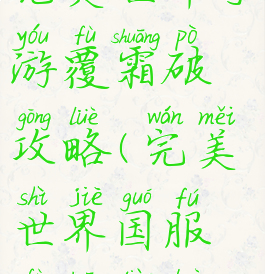 yóu fù shuāng pò
游覆霜破
gōng lüè wán měi
攻略(完美
shì jiè guó fú
世界国服